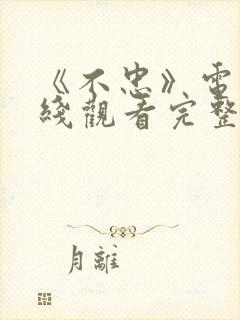 《不忠》電
綫觀看完整
月離